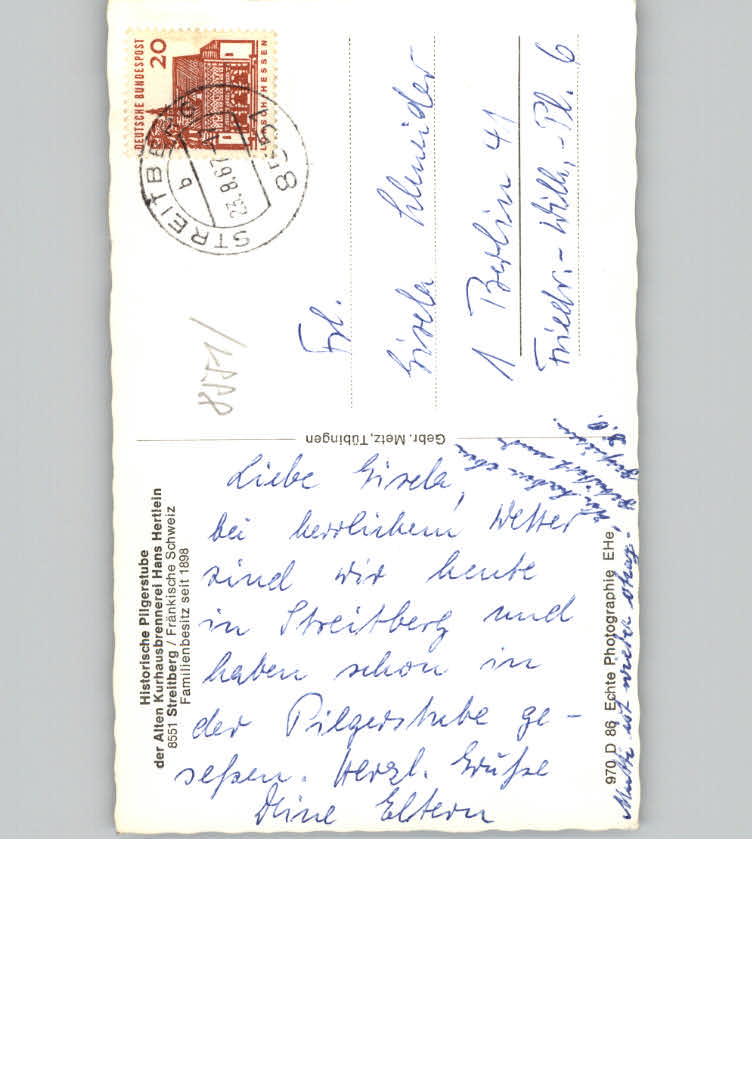 Historische Pilgerstube
der Alten Kurhausbrennerei Hans Hertlein
8551 Streitberg / Fränkische Schweiz
Familienbesitz seit 1898
Liebe Gisela,
bei herrlichem Wetter
sind wir heute
in Streitberg und
haben schon in
der Pilgerstube ge-
seßen. Herzl. Grüße
Deine Eltern
Mutti ist wieder obenauf
haben
970 D 86 Echte Photographie EHe
Gebr. Metz, Tübingen
DEUTSCHE BUNDESPOST
20
LORSCH/HESSEN
8551 STREITBERG
b
23.8.67
8551/
Frl.
Gisela Schneider
1 Berlin 41
Friedr.-Wilh.-Pl. 6